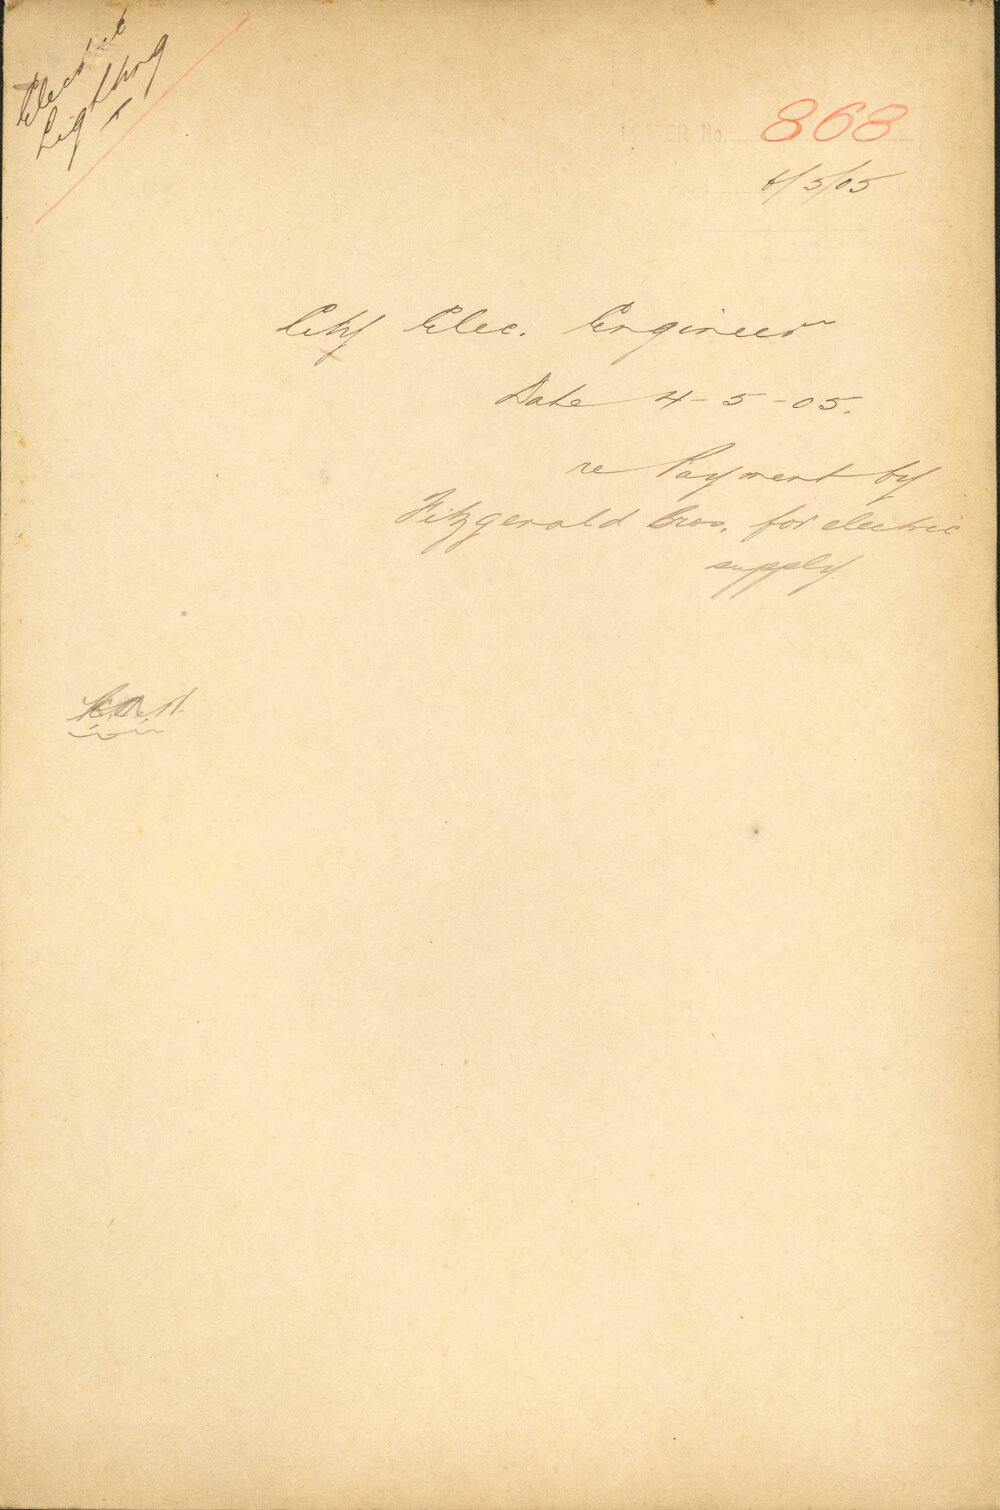 Electric
Lighting
LETTER No. 868
6/5/05
City Elec. Engineer
Date 4-5-05.
re Payment by
Fitzgerald Bros. for electric
supply